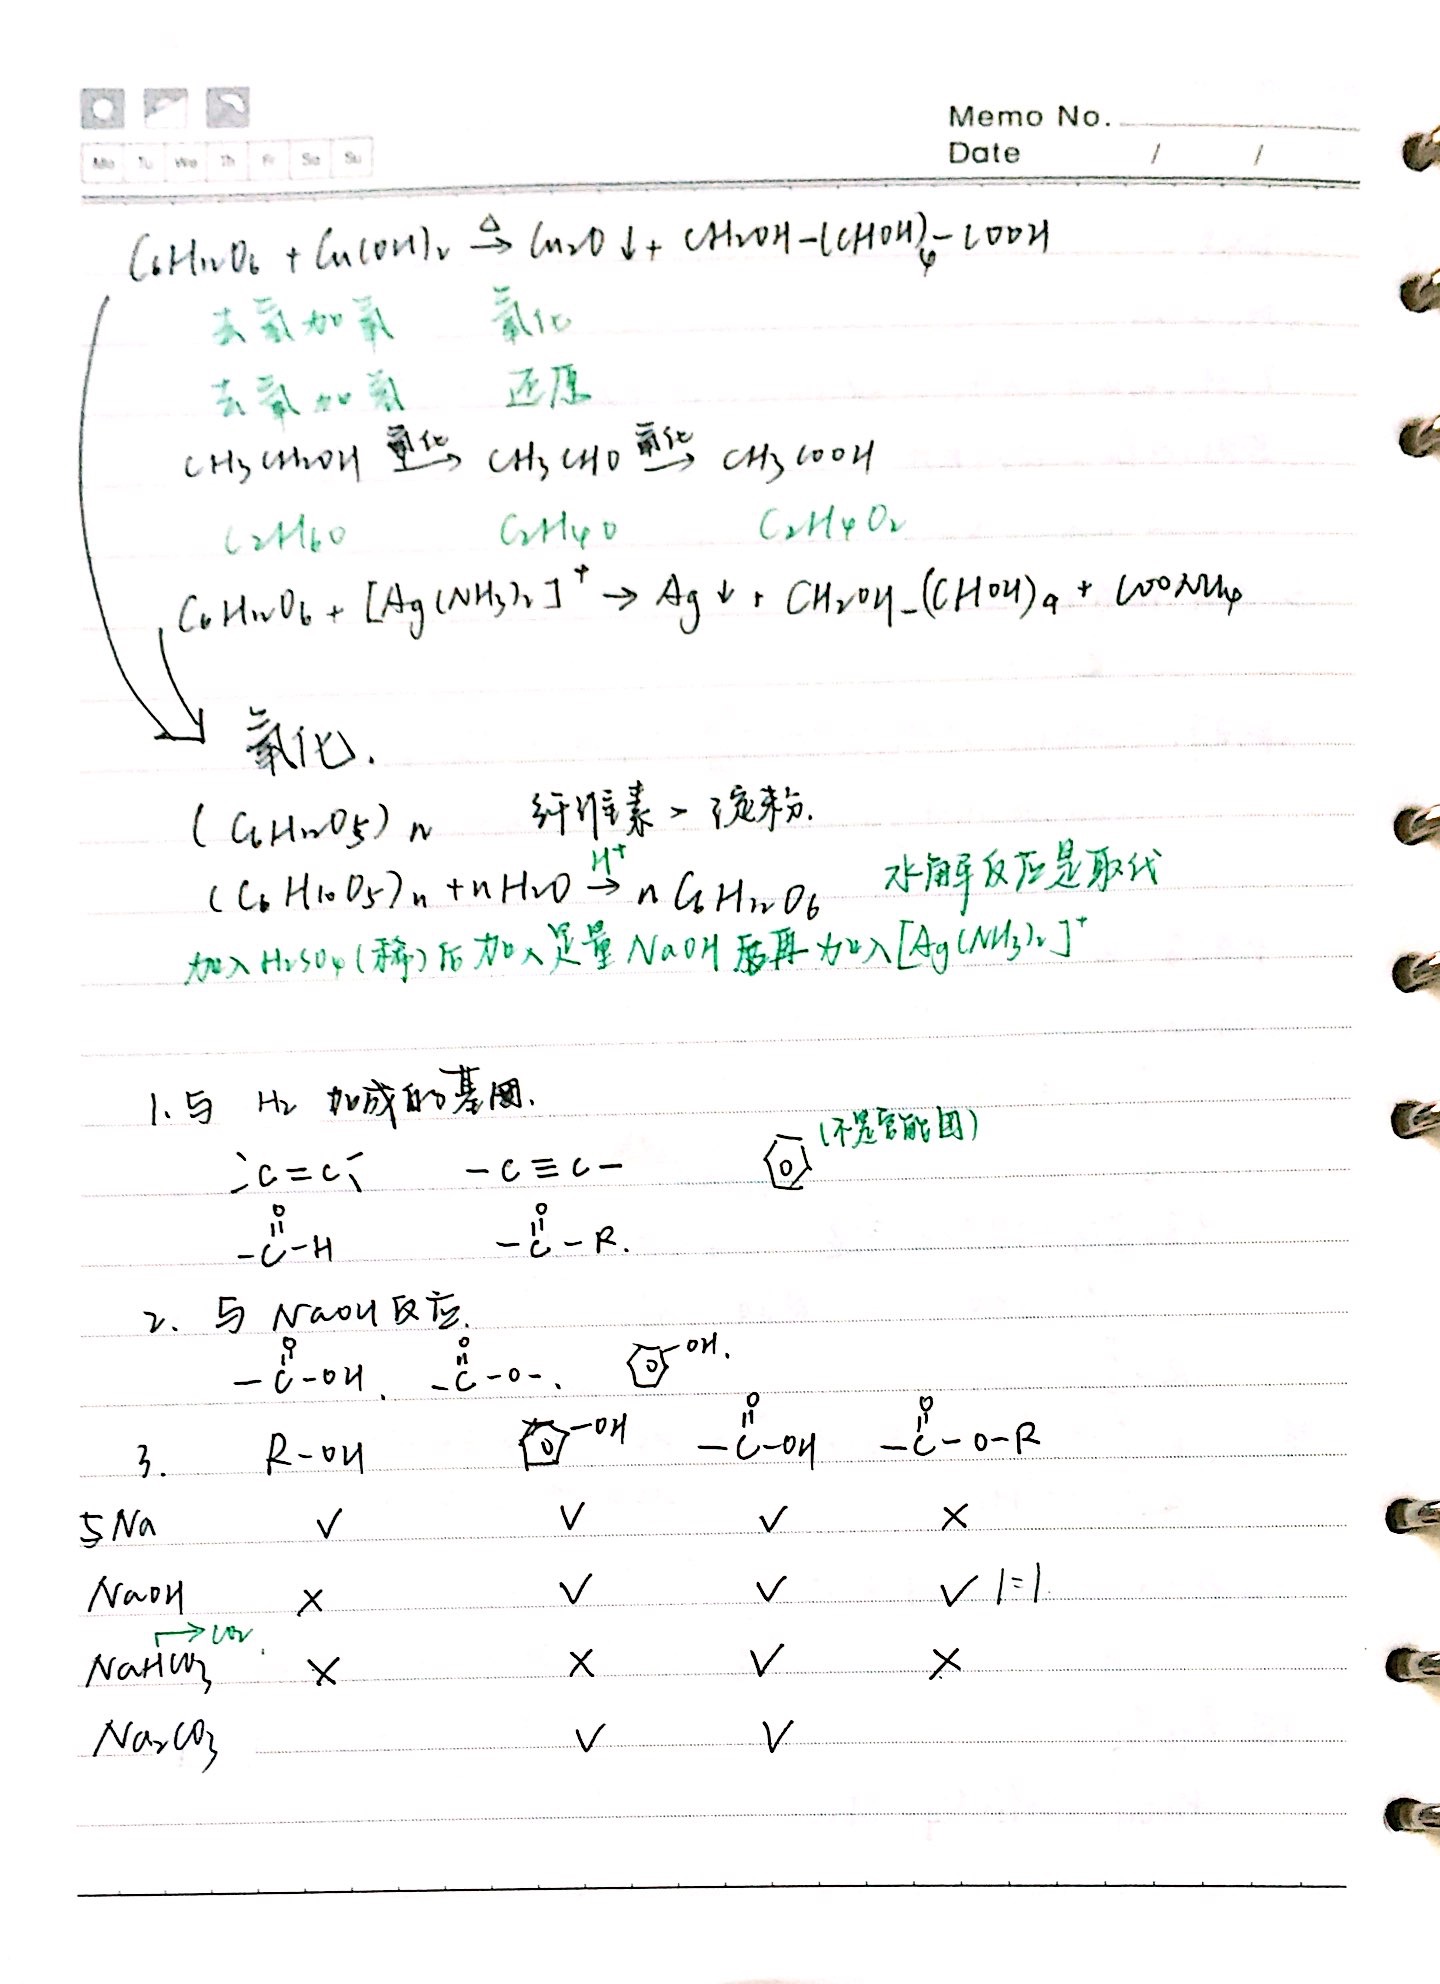 Memo No.
Mo Tu We Th Fr Sa Su
Date / /
C₆H₁₂O₆ + Cu(OH)₂ →(△) Cu₂O↓ + CH₂OH-(CHOH)₄-COOH
去氢加氧 氧化
去氧加氢 还原
CH₃CH₂OH →(氧化) CH₃CHO →(氧化) CH₃COOH
C₂H₆O C₂H₄O C₂H₄O₂
C₆H₁₂O₆ + [Ag(NH₃)₂]⁺ → Ag↓ + CH₂OH-(CHOH)₄ + COONH₄
氧化.
(C₆H₁₂O₅)n 纤维素 > 淀粉.
(C₆H₁₀O₅)n + nH₂O →(H⁺) nC₆H₁₂O₆ 水解反应是取代
加入H₂SO₄(稀)后加入足量NaOH 后再加入[Ag(NH₃)₂]⁺
1. 与 H₂ 加成的基团.
C=C -C≡C- (不是官能团)
O O
-C-H -C-R.
2. 与 NaOH 反应.
O O
-C-OH. -C-O-. -OH.
O O
3. R-OH -OH -C-OH -C-O-R
与Na ✓ ✓ ✓ ×
NaOH × ✓ ✓ ✓ 1=1
→CO₂
NaHCO₃ × × ✓ ×
Na₂CO₃ ✓ ✓